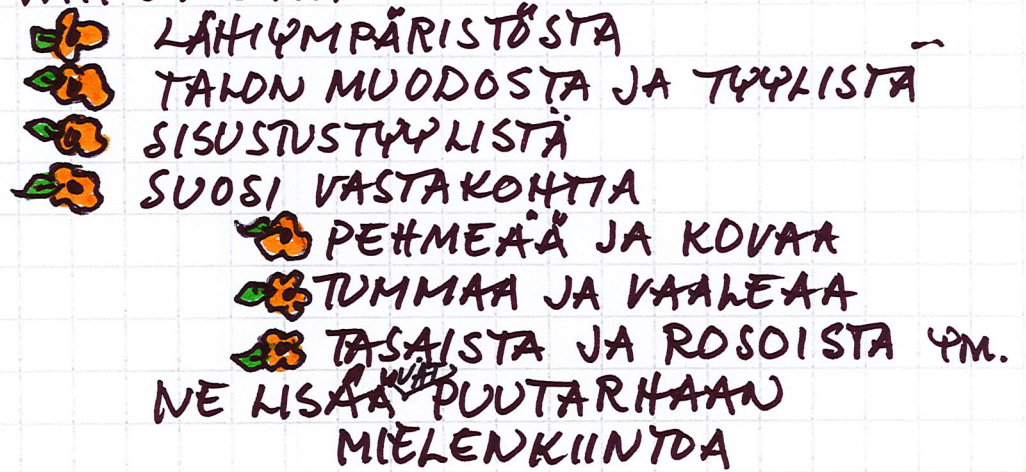 LÄHIYMPÄRISTÖSTA
TALON MUODOSTA JA TYYLISTA
SISUSTUSTYYLISTÄ
SUOSI VASTAKOHTIA
PEHMEÄÄ JA KOVAA
TUMMAA JA VAALEAA
TASAISTA JA ROSOISTA YM.
NE LISÄÄVÄT PUUTARHAAN
MIELENKIINTOA